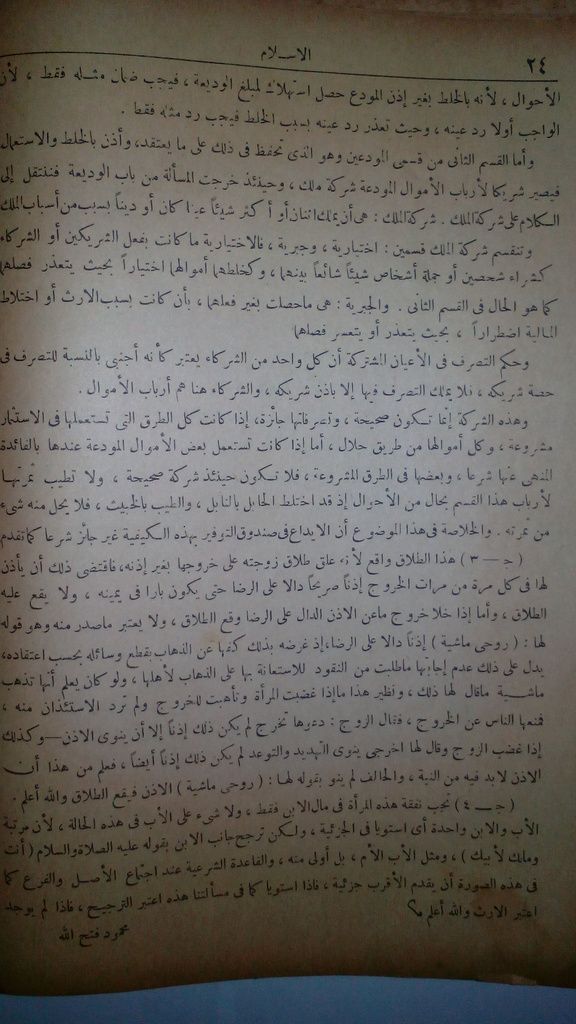 ٢٤
الاسلام
الأحوال ، لأنه بالخلط بغير إذن المودع حصل استهلاك لمبلغ الوديعة ، فيجب ضمان مثله فقط ، لأن
الواجب أولا رد عينه ، وحيث تعذر رد عينه بسبب الخلط فيجب رد مثله فقط .
وأما القسم الثانى من قسمى المودعين وهو الذى تحفظ فى ذلك على ما يعتقد، وأذن بالخلط والاستعمال
فيصير شريكا لأرباب الأموال المودعة شركة ملك ، وحينئذ خرجت المسألة من باب الوديعة فننتقل إلى
الكلام على شركة الملك . شركة الملك : هى أن يملك اثنان أو أكثر شيئاً عينا كان أو ديناً بسبب من أسباب الملك
وتنقسم شركة الملك قسمين : اختيارية ، وجبرية ، فالاختيارية ما كانت بفعل الشريكين أو الشركاء
كشراء شخصين أو جملة أشخاص شيئاً شائعاً بينهما ، وكخلطهما أموالهما اختياراً بحيث يتعذر فصلهما
كما هو الحال فى القسم الثانى . والجبرية : هى ماحصلت بغير فعلهما ، بأن كانت بسبب الارث أو اختلاط
المالية اضطراراً ، بحيث يتعذر أو يتعسر فصلهما
وحكم التصرف فى الأعيان المشتركة أن كل واحد من الشركاء يعتبر كأنه أجنبى بالنسبة للتصرف فى
حصة شريكه ، فلا يملك التصرف فيها إلا باذن شريكه ، والشركاء هنا هم أرباب الأموال .
وهذه الشركة إنما تكون صحيحة ، وتصرفاتها جائزة، إذا كانت كل الطرق التى تستعملها فى الاستثمار
مشروعة ، وكل أموالها من طريق حلال ، أما إذا كانت تستعمل بعض الأموال المودعة عندها بالفائدة
المنهى عنها شرعا ، وبعضها فى الطرق المشروعة ، فلا تكون حينئذ شركة صحيحة ، ولا تطيب ثمرتها
لأرباب هذا القسم بحال من الأحوال إذ قد اختلط الحابل بالنابل ، والطيب بالخبيث ، فلا يحل منه شىء
من ثمرته . والخلاصة فى هذا الموضوع أن الايداع فى صندوق التوفير بهذه الكيفية غير جائز شرعا كما تقدم
( جـ ـــ ٣ ) هذا الطلاق واقع لأنه علق طلاق زوجته على خروجها بغير إذنه، فاقتضى ذلك أن يأذن
لها فى كل مرة من مرات الخروج إذناً صريحاً دالا على الرضا حتى يكون بارا فى يمينه ، ولا يقع عليه
الطلاق ، وأما إذا خلا خروج ماعن الاذن الدال على الرضا وقع الطلاق ، ولا يعتبر ماصدر منه وهو قوله
لها : ( روحى ماشية ) إذناً دالا على الرضا،إذ غرضه بذلك كفها عن الذهاب بقطع وسائله بحسب اعتقاده،
يدل على ذلك عدم إجابتها ماطلبت من النقود للاستعانة بها على الذهاب لأهلها ، ولو كان يعلم أنها تذهب
ماشية ماقال لها ذلك ، ونظير هذا ماإذا غضبت المرأة وتأهبت للخروج ولم ترد الاستئذان منه ،
فمنعها الناس عن الخروج ، فقال الزوج : دعوها تخرج لم يكن ذلك إذناً إلا أن ينوى الاذن—وكذلك
إذا غضب الزوج وقال لها اخرجى ينوى التهديد والتوعد لم يكن ذلك إذناً أيضاً ، فعلم من هذا أن
الاذن لابد فيه من النية ، والحالف لم ينو بقوله لها : ( روحى ماشية ) الاذن فيقع الطلاق والله أعلم .
( جـ ـــ ٤ ) تجب نفقة هذه المرأة فى مال الابن فقط ، ولا شىء على الأب فى هذه الحالة ، لأن مرتبة
الأب والابن واحدة أى استويا فى الجزئية ، ولكن ترجح جانب الابن بقوله عليه الصلاة والسلام ( أنت
ومالك لأبيك ) ، ومثل الأب الأم ، بل أولى منه ، والقاعدة الشرعية عند اجتماع الأصل والفرع كما
فى هذه الصورة أن يقدم الأقرب جزئية ، فاذا استويا كما فى مسألتنا هذه اعتبر الترجيح ، فاذا لم يوجد
اعتبر الارث والله أعلم ؟
محمود فتح الله